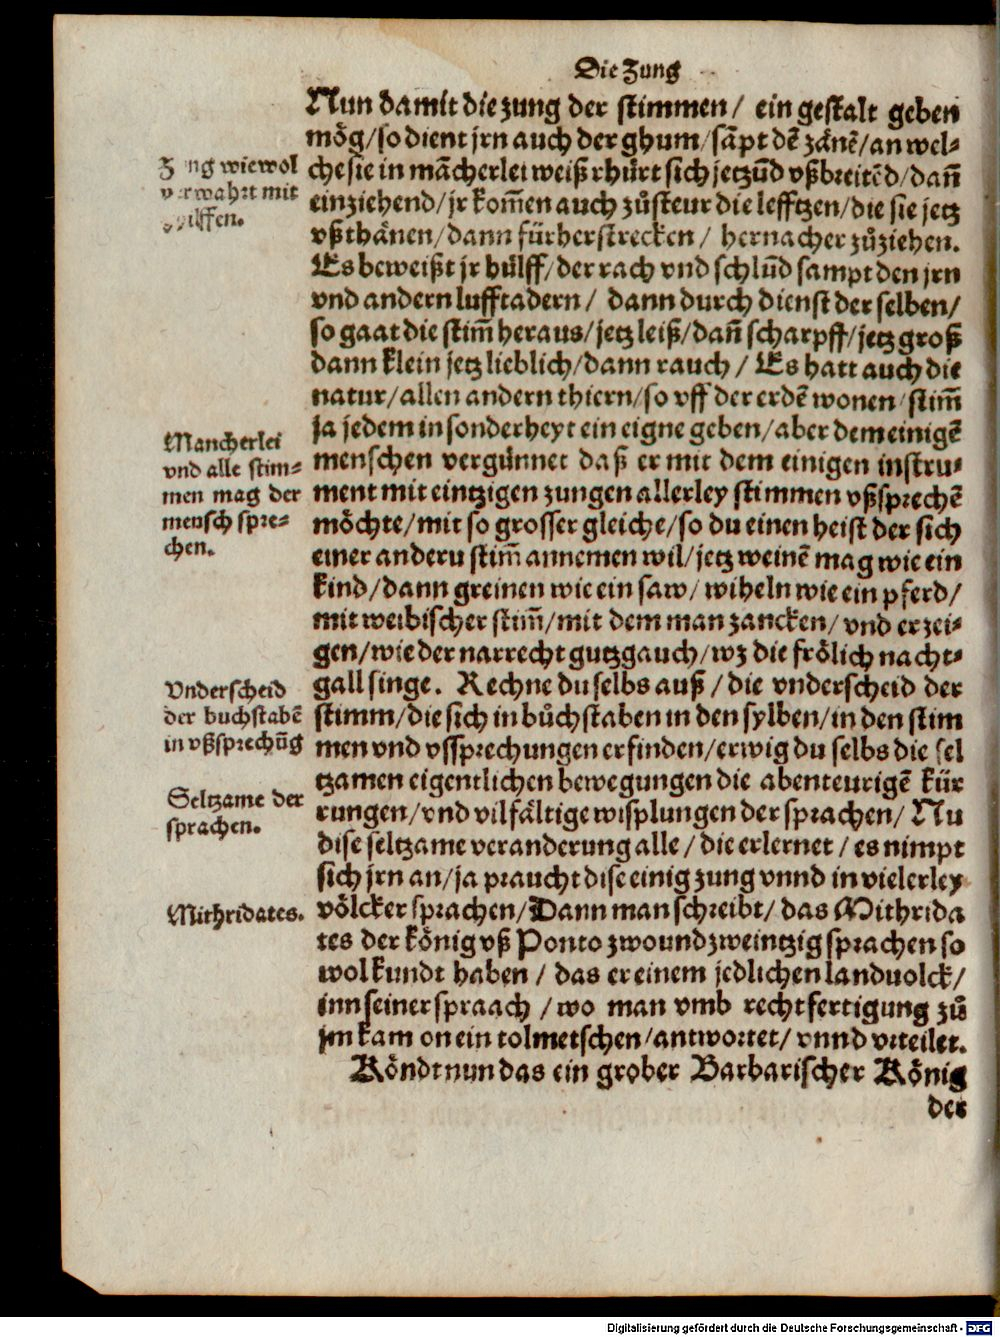 Die Zung
Nun damit die zung der stimmen/ ein gestalt geben
mög/so dient jrn auch der ghum/sãpt dẽ zänẽ/an wel-
che sie in mãcherlei weiß rhürt sich jetzũd vßbreitẽd/dañ
einziehend/jr kom̃en auch zůsteur die lefftzen/die sie jetz
vßthänen/dann fürherstrecken/ hernacher zůziehen.
Es beweißt jr hülff/der rach vnd schlũd sampt den jrn
vnd andern lufftadern/ dann durch dienst der selben/
so gaat die stim̃ heraus/jetz leiß/dañ scharpff/jetz groß
dann klein jetz lieblich/dann rauch/ Es hatt auch die
natur/allen andern thiern/so vff der erdẽ wonen/stim̃
ja jedem in sonderheyt ein eigne geben/aber dem einigẽ
menschen vergünnet daß er mit dem einigen instru-
ment mit eintzigen zungen allerley stimmen vßsprechẽ
möchte/mit so grosser gleiche/so du einen heist der sich
einer anderu stim̃ annemen wil/jetz weinẽ mag wie ein
kind/dann greinen wie ein saw/ wiheln wie ein pferd/
mit weibischer stim̃/mit dem man zancken/ vnd erzei-
gen/wie der narrecht gutzgauch/wz die frölich nacht-
gall singe. Rechne du selbs auß/die vnderscheid der
stimm/die sich in bůchstaben in den sylben/in den stim
men vnd vssprechungen erfinden/erwig du selbs die sel
tzamen eigentlichen bewegungen die abenteurigẽ kür
rungen/vnd vilfältige wisplungen der sprachen/ Nu
dise seltzame veranderung alle/die erlernet/es nimpt
sich jrn an/ja praucht dise einig zung vnnd in vielerley
völcker sprachen/Dann man schreibt/das Mithrida
tes der könig vß Ponto zwoundzweintzig sprachen so
wol kundt haben/ das er einem jedlichen landuolck/
inn seiner spraach/wo man vmb rechtfertigung zů
jm kam on ein tolmetschen/antwortet/vnnd vrteilet.
Köndt nun das ein grober Barbarischer König
der
wiewol
mit
Mancherlei
vnd alle stim-
men mag der
mensch spre-
chen.
Vnderscheid
der buchstabẽ
in vßsprechũg
Seltzame der
sprachen.
Mithridates.
Digitalisierung gefördert durch die Deutsche Forschungsgemeinschaft - DFG